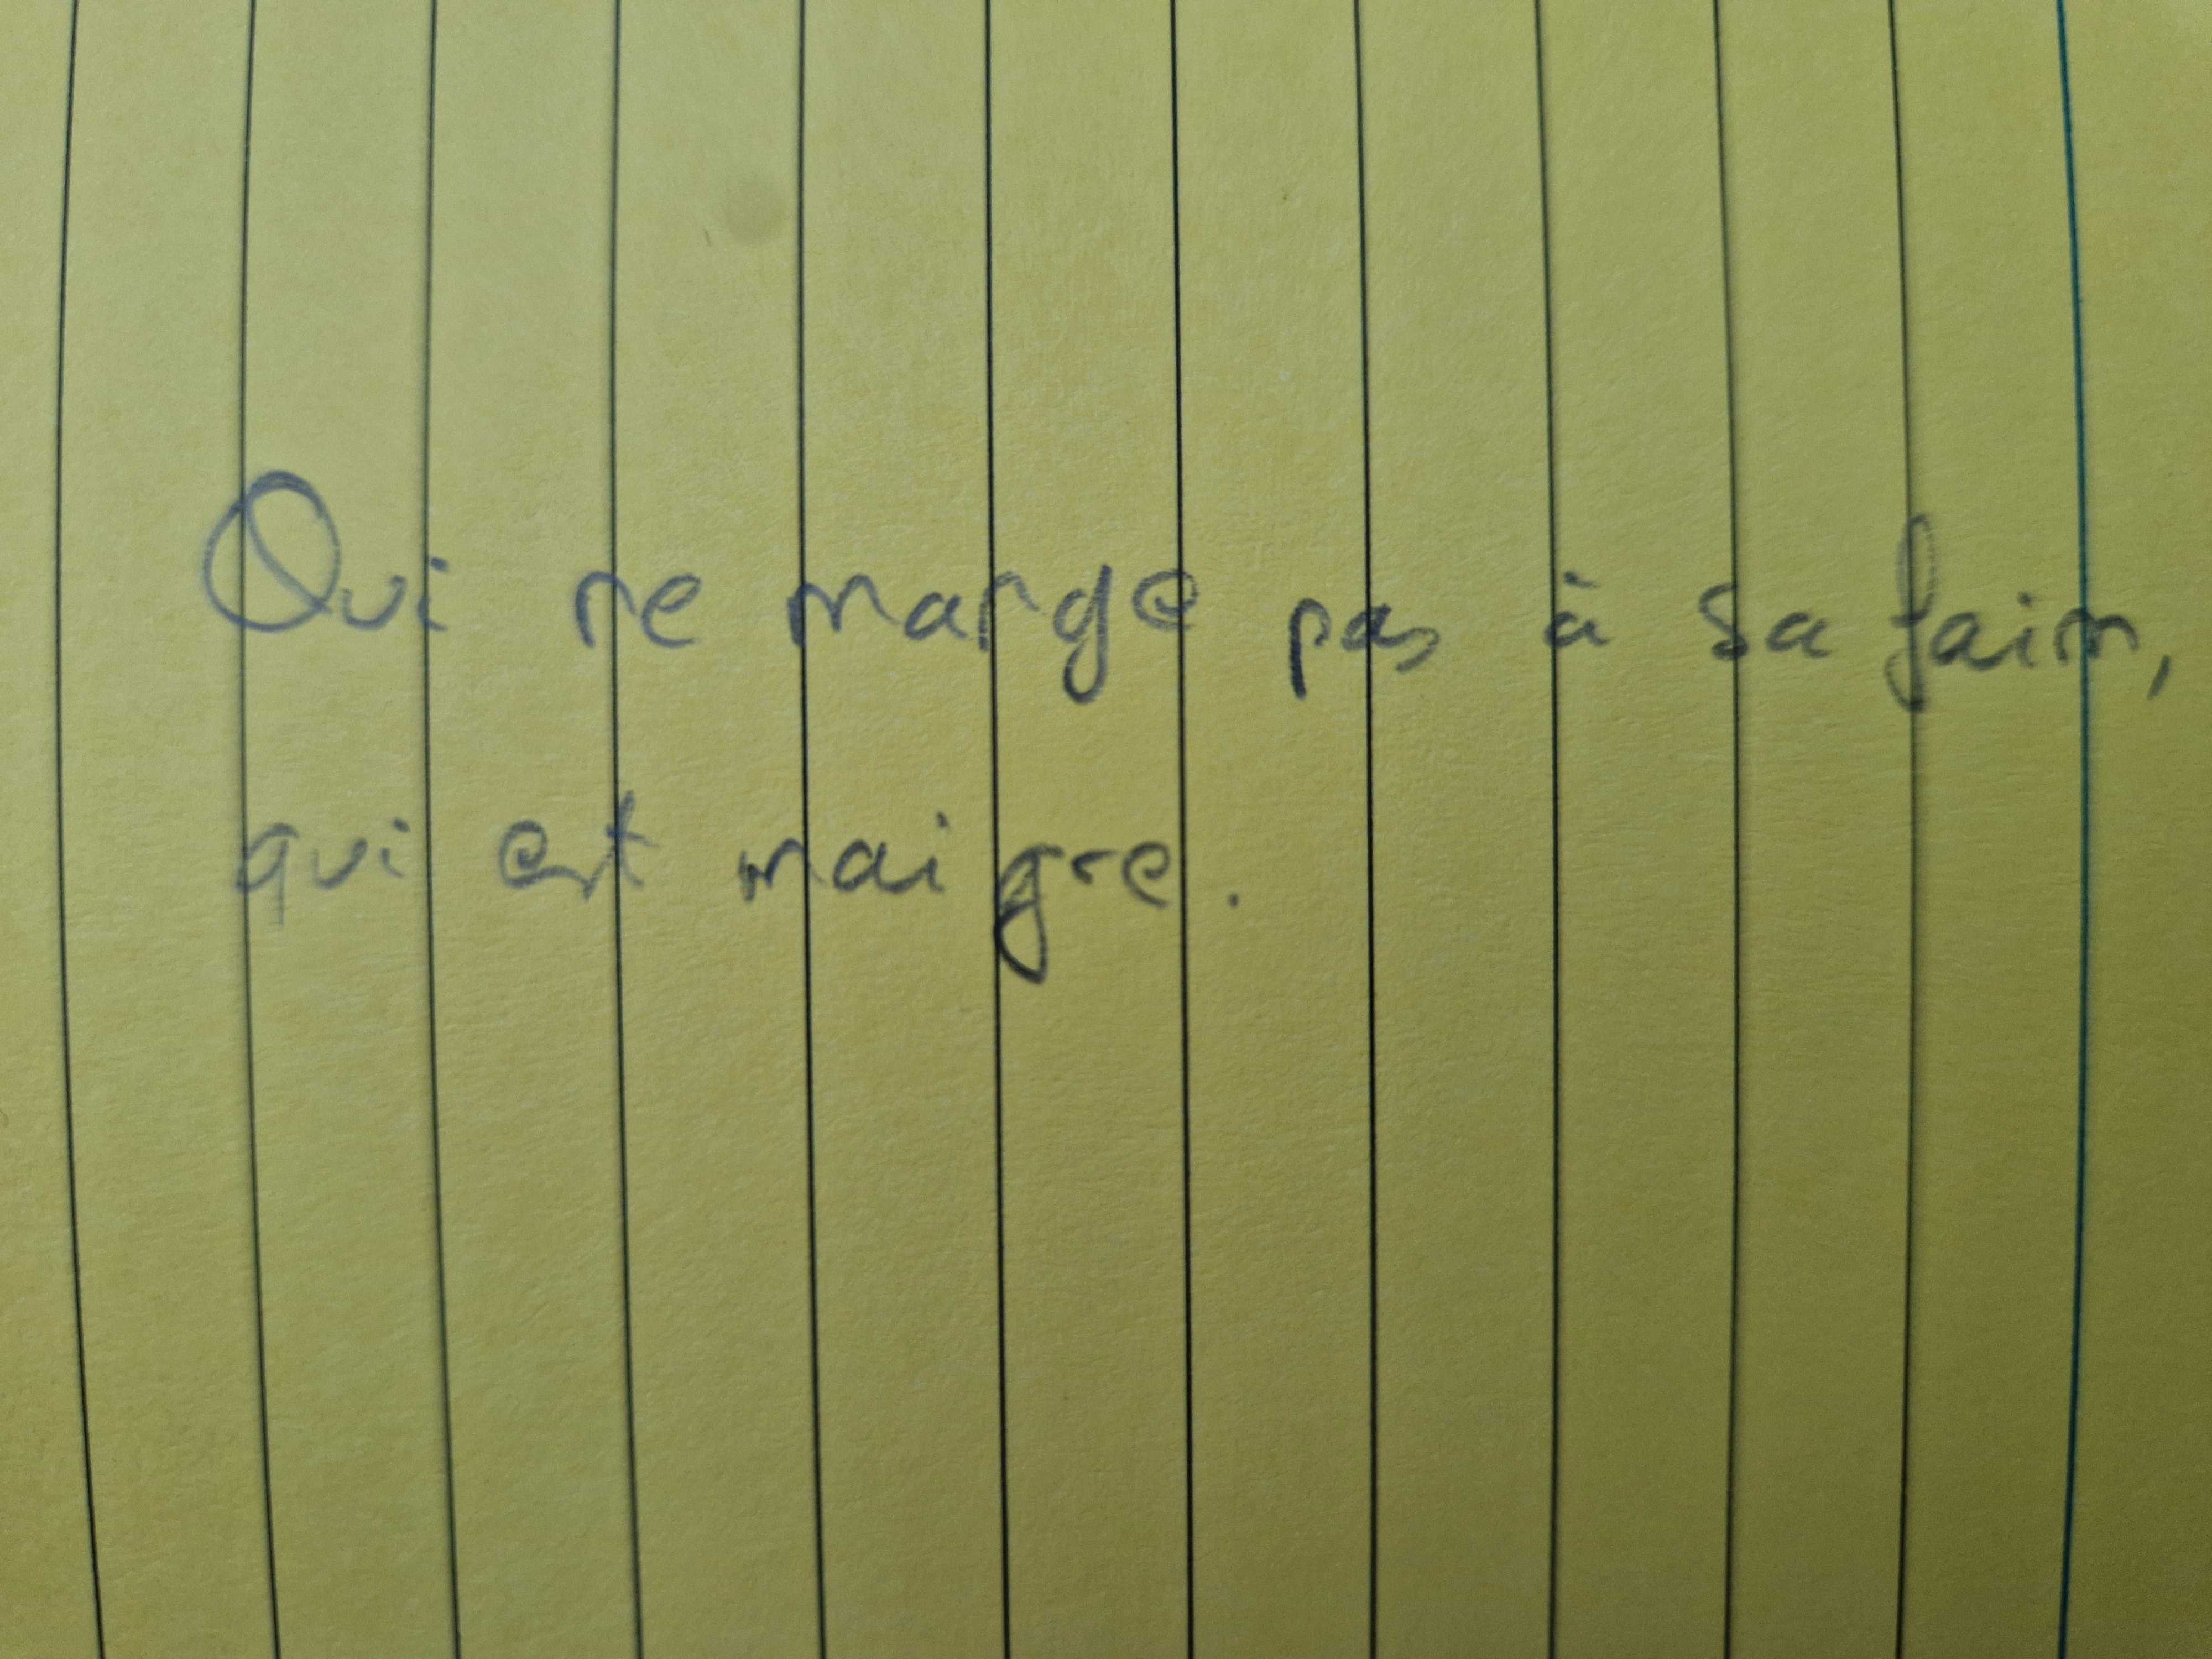 Qui ne mange pas à sa faim,
qui est maigre.